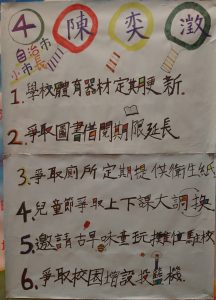 4 陳奕澂
自治市
小市長
1. 學校體育器材定期更新.
2. 爭取圖書借閱期限延長
3. 爭取廁所定期提供衛生紙
4. 兒童節爭取上下課大調換
5. 邀請古早味童玩攤位駐校
6. 爭取校園增設投籃機.